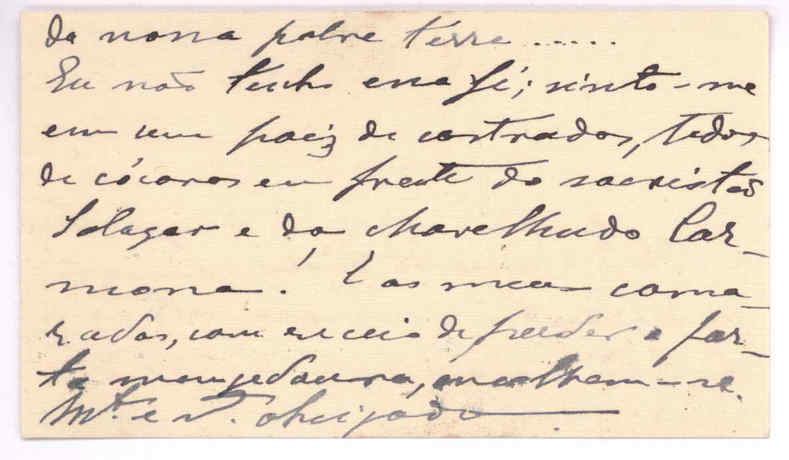 da nossa pobre terra ......
Eu não tenho essa fé; sinto-me
em um paiz de castrados, todos
de cócoras em frente do sacristão
Salazar e do chavelhudo Car-
mona! E os meus cama-
radas, com receio de perder a far-
ta mangedoura, encolhem-se.
Mto e V. obrigado